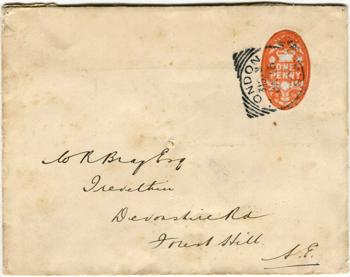 LONDON
ONE
PENNY
W R Bray Esq
Trevethin
Devonshire Rd
Forest Hill.
S.E.